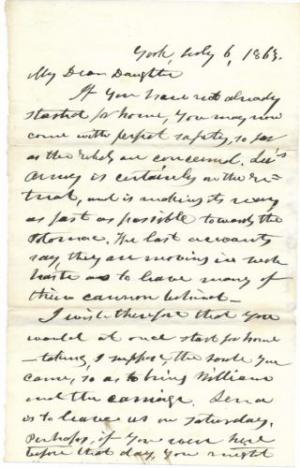 York, July 6, 1863.
My Dear Daughter
If you have not already
started for home, you may now
come with perfect safety, so far
as the rebels are concerned. Lee's
army is certainly on the re-
treat, and is making its way
as fast as possible towards the
Potomac. The last accounts
say they are moving in such
haste as to leave many of
their cannon behind—
I wish therefore that you
would at once start for home
—taking, I suppose, the route you
came, so as to bring William
and the carriage. Lena
is to leave us on Saturday.
Perhaps, if you were here
before that day, you might